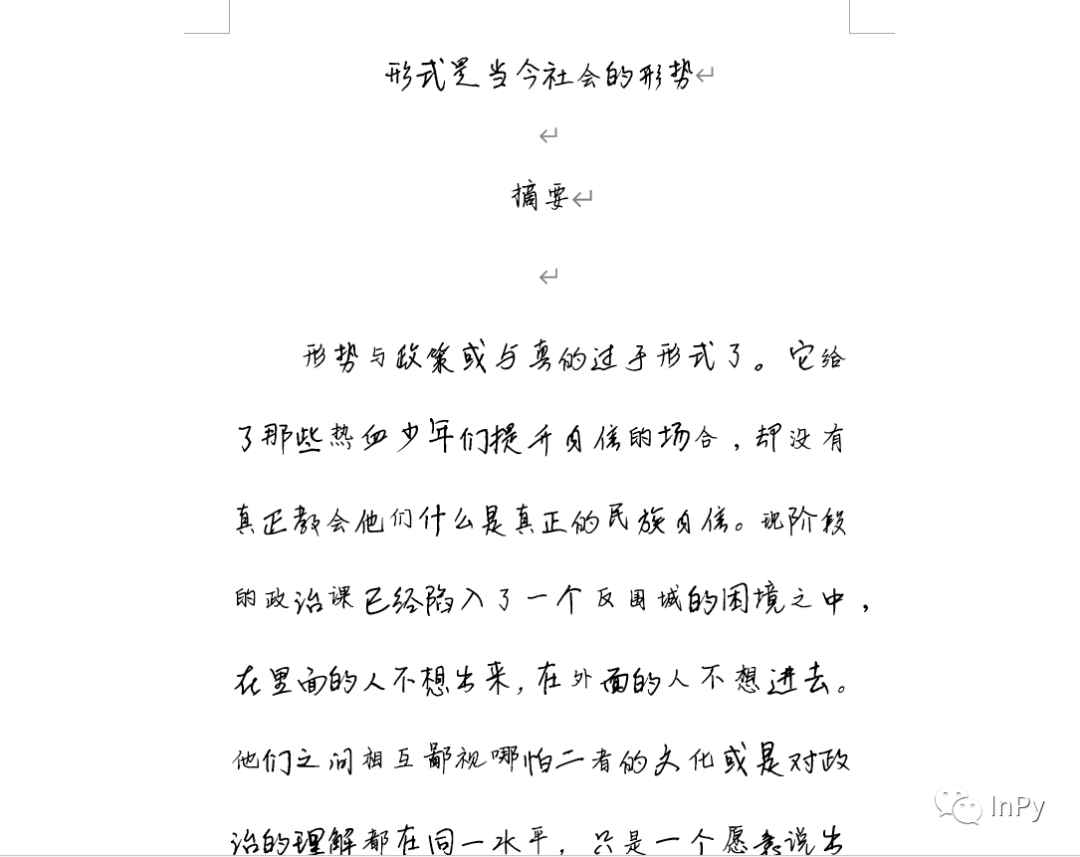 形式是当今社会的形势
摘要
形势与政策或与真的过于形式了。它给
了那些热血少年们提升自信的场合，却没有
真正教会他们什么是真正的民族自信。现阶段
的政治课已经陷入了一个反围城的困境之中，
在里面的人不想出来，在外面的人不想进去。
他们之间相互鄙视哪怕二者的文化或是对政
治的理解都在同一水平，只是一个愿意说出
InPy